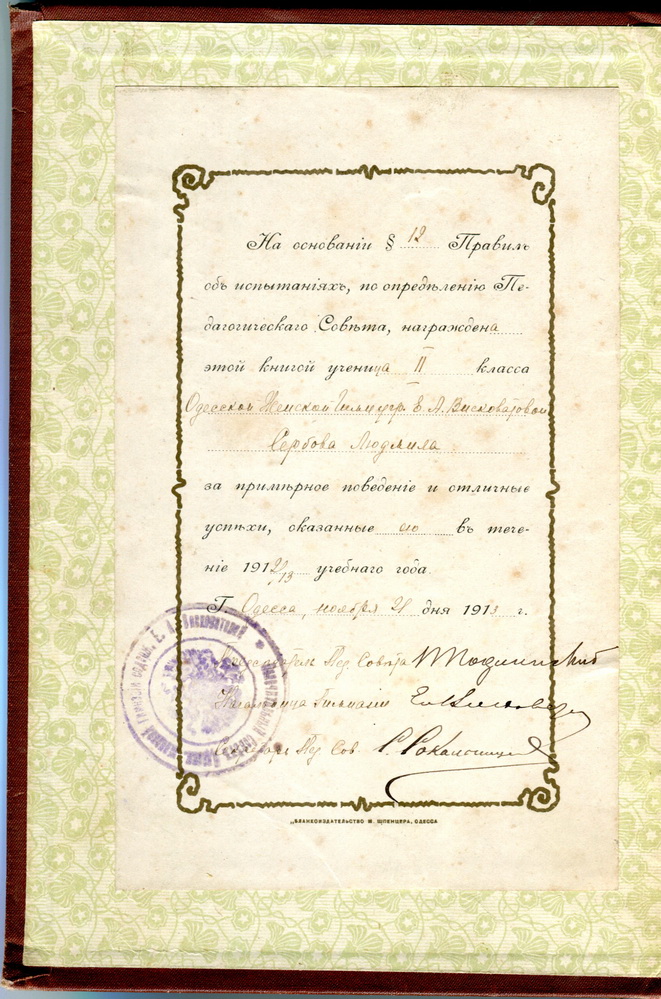 На основаніи § 12 Правилъ
объ испытаніяхъ, по опредѣленію Пе-
дагогическаго Совѣта, награждена
этой книгой ученица II класса
Одесской Женской Гимназ. Е. А. Висковатовой
Сербова Людмила
за примѣрное поведеніе и отличные
успѣхи, оказанные ею въ тече-
ніе 1912/13 учебнаго года.
Г. Одесса, ноября 21 дня 1913 г.
Предсѣдатель Пед. Совѣта
Начальница Гимназіи
Секретарь Пед. Сов.
„БЛАНКОИЗДАТЕЛЬСТВО М. ШПЕНЦЕРА, ОДЕССА